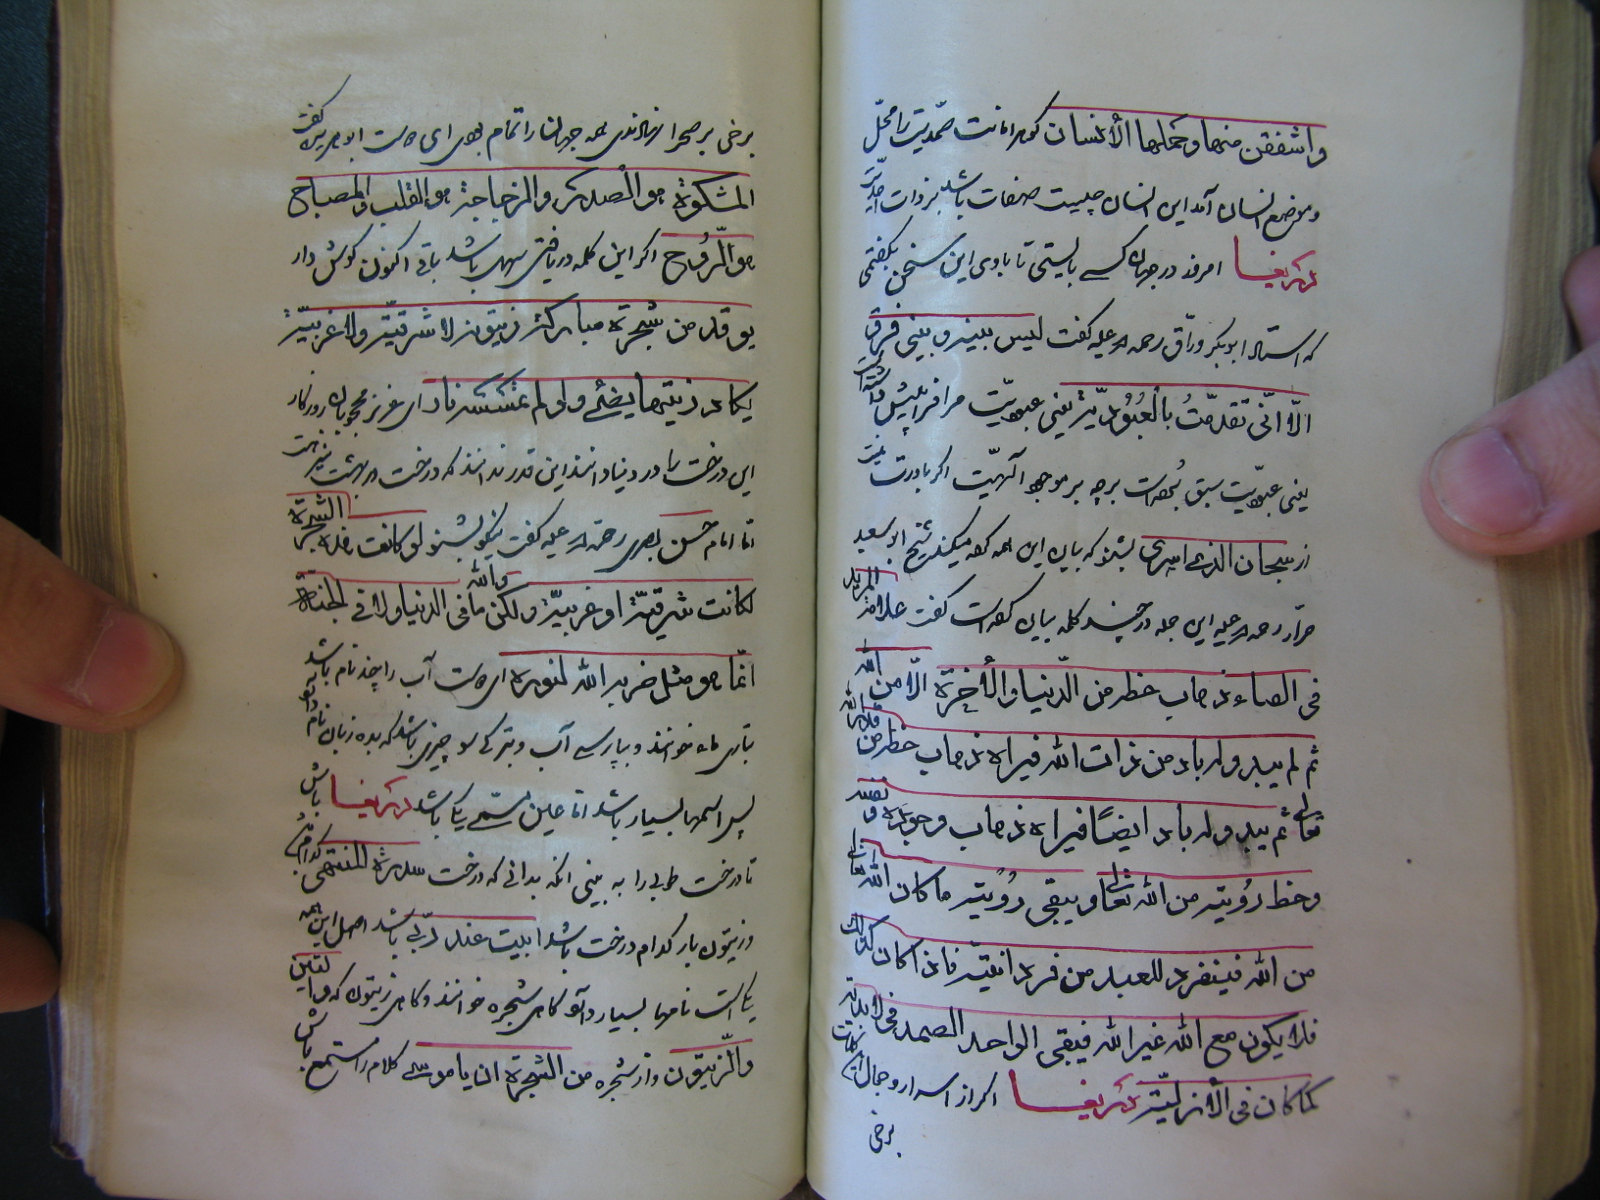 واشفقن منها وحملها الأنسان کوهر امانت صمدیت را محلّ
وموضع انسان آمد این انسان چیست صفات باشد بر ذات احدیّت
دریغا امروز در جهان کسی بایستی تا با وی این سخن بکفتمی
که استاد ابوبکر ورّاق رحمه الله علیه کفت لیس بینه وبینی فرق
الّا انّی تقدمّتُ بالعبُودیّة یعنی عبودیّت مرا فرا پیش داشته است
یعنی عبودیت سبق برده است بر موجود الهیّت اکر باورت نیست
از سبحان الذی اسری بشنو که بیان این همه کفه میکند شیخ ابو سعید
خرّاز رحمه الله علیه این جمله در چند کلمه بیان کرده است کفت علامة المرید
فی الفناء ذهاب حظه من الدّنیا والأخرة الّا من الله
ثم لم یبد وله باد من ذات الله فیراه ذهاب حظه من الله
تعالی ثم یبد وله باد ایضاً فیراه ذهاب وجوده ونفسه
وحظ رؤیته من الله تعالی ویبقی رؤیته ما کان الله تعالی
من الله فینفرد للعبد من فردانیّته فاذا کان کذلک
فلا یکون مع الله غیر الله فیبقی الواحد الصمد فی الابدیّة
کما کان فی الأزلیّة دریغا اکر از اسرار وجمال این کلمات
برخی
برخی بر صحرا نهادندی همه جهان را تمام بودی ای دوست ابو هریره کفت
المشکوة هو الصدر والزجاجة هو القلب والمصباح
هو الرّوح اکر این کلمه دریافتی سهل باشد باقی اکنون کوش دار
یوقد من شجرة مبارکة زیتونة لا شرقیّة ولا غربیّة
یکاد زیتها یضئ ولو لم تمسسه نار ای عزیز محجوبان روزکار
این درخت را در دنیا دانند این قدر ندانند که درخت در بهشت نیز هست
امّا امام حسن بصری رحمة الله علیه کفت نیکو بشنو لو کانت هذه الشجرة
لکانت شرقیّة او غربیّة ولکن والله ما فی الدنیا ولا فی الجنّة
انّما هو مثل ضربه الله لنوره ای دوست آب را چند نام باشد
بتازی ماء خوانند وبپارسی آب یک چیزی باشد که بده زبان نام دارد
پس اسمها بسیار باشد امّا عین مسمّی یکی باشد دریغا باش
تا درخت طوبی را به بینی آنکه بدانی که درخت سدرة المنتهی کدام است
وزیتون باز کدام درخت باشد ابیت عند ربّی باشد اصل این همه
یکی است نامها بسیار دارد کاهی شجره خوانند وکاهی زیتون که والتین
والزّیتون واز شجره من الشجرة ان یا موسی کلام را مستمع باش